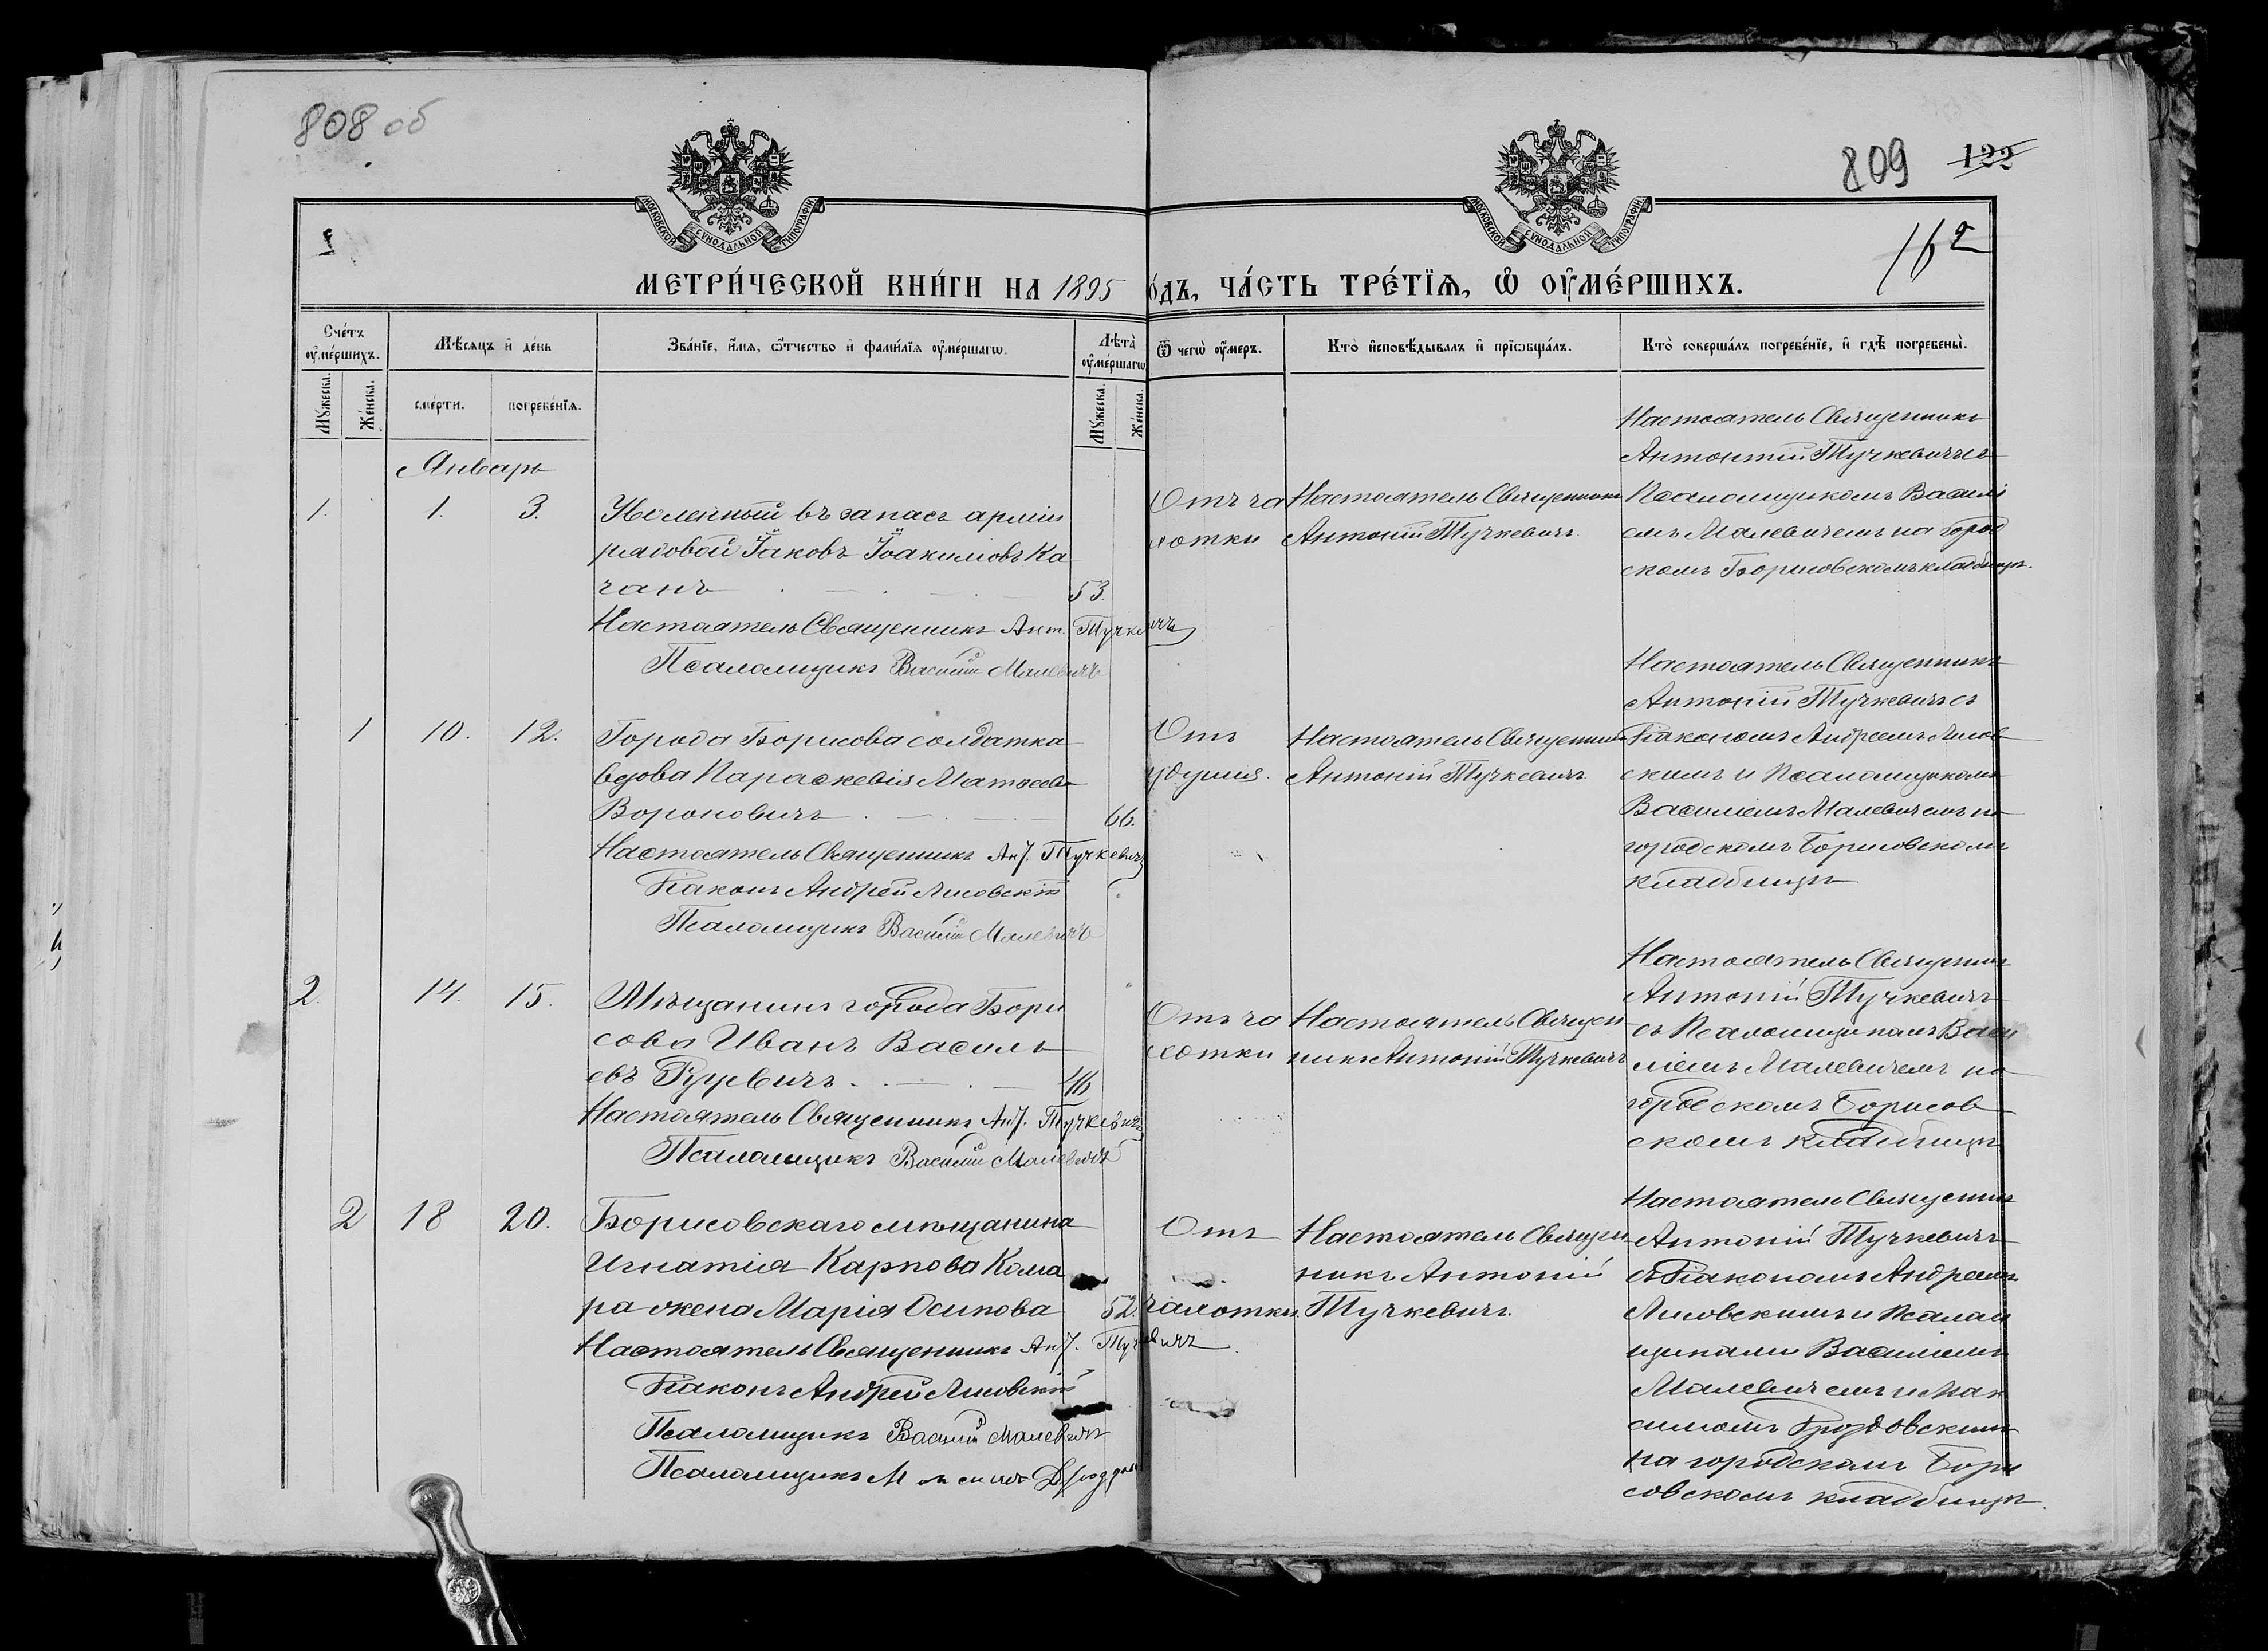 808 об
809 122
162
МОСКОВСКОЙ СѴНОДАЛЬНОЙ ТИПОГРАФІИ
МОСКОВСКОЙ СѴНОДАЛЬНОЙ ТИПОГРАФІИ
МЕТРИ́ЧЕСКОЙ КНИ́ГИ НА 1895
О́ДЪ, ЧА́СТЬ ТРЕ́ТЇѦ, Ѡ҆ ОУ҆МЕ́РШИХЪ.
Сче́тъ оу҆ме́ршихъ.
Мꙋ́жеска.
Же́нска.
Мѣ́сѧцъ и҆ де́нь
сме́рти.
погребе́нїѧ.
Зва́нїе, и҆́мѧ, ѻ҆́тчество и҆ фами́лїѧ оу҆ме́ршагѡ.
Лѣ́та оу҆ме́ршагѡ
Мꙋ́жеска.
Же́нска.
Ѿ чегѡ̀ оу҆́меръ.
Кто̀ и҆сповѣ́дывалъ и҆ прїѡбща́лъ.
Кто̀ соверша́лъ погребе́нїе, и҆ гдѣ̀ погребены̀.
Январь
1. 1. 3.
Уволенный въ запасъ арміи
рядовой Іаковъ Іоакимовъ Ка
чанъ 53.
Настоятель Священникъ Ант. Тучкевичъ
Псаломщикъ Василій Малевичъ
Отъ ча
хотки
Настоятель Священникъ
Антоній Тучкевичъ.
Настоятель Священникъ
Антоній Тучкевичъ съ
Псаломщикомъ Василі
емъ Малевичемъ на город
скомъ Борисовскомъ кладбищѣ.
1 10. 12.
Города Борисова солдатка
вдова Параскевія Матѳеева
Вороновичъ 66.
Настоятель Священникъ Ант. Тучкевичъ
Діаконъ Андрей Лисовскій
Псаломщикъ Василій Малевичъ
Отъ
удушья.
Настоятель Священникъ
Антоній Тучкевичъ
Настоятель Священникъ
Антоній Тучкевичъ съ
Діакономъ Андреемъ Лисов
скимъ и Псаломщикомъ
Василіемъ Малевичемъ на
городскомъ Борисовскомъ
кладбищѣ
2. 14. 15.
Мѣщанинъ города Бори
сова Иванъ Василь
евъ 46
Настоятель Священникъ Ант. Тучкевичъ
Псаломщикъ Василій Малевичъ
Отъ ча
хотки
Настоятель Священ
никъ Антоній Тучкевичъ
Настоятель Священникъ
Антоній Тучкевичъ
съ Псаломщикомъ Васи
ліемъ Малевичемъ на
городскомъ Борисов
скомъ кладбищѣ
2 18 20.
Борисовскаго мѣщанина
Игнатія Карпова Кома
ра жена Марія Осипова 52.
Настоятель Священникъ Ант. Тучкевичъ
Діаконъ Андрей Лисовскій
Псаломщикъ Василій Малевичъ
Псаломщикъ
Отъ
чахотки.
Настоятель Священ
никъ Антоній
Тучкевичъ.
Настоятель Священникъ
Антоній Тучкевичъ
съ Діакономъ Андреемъ
Лисовскимъ и Псалом
щиками Василіемъ
Малевичемъ и Мак
симомъ
на городскомъ Бори
совскомъ кладбищѣ.